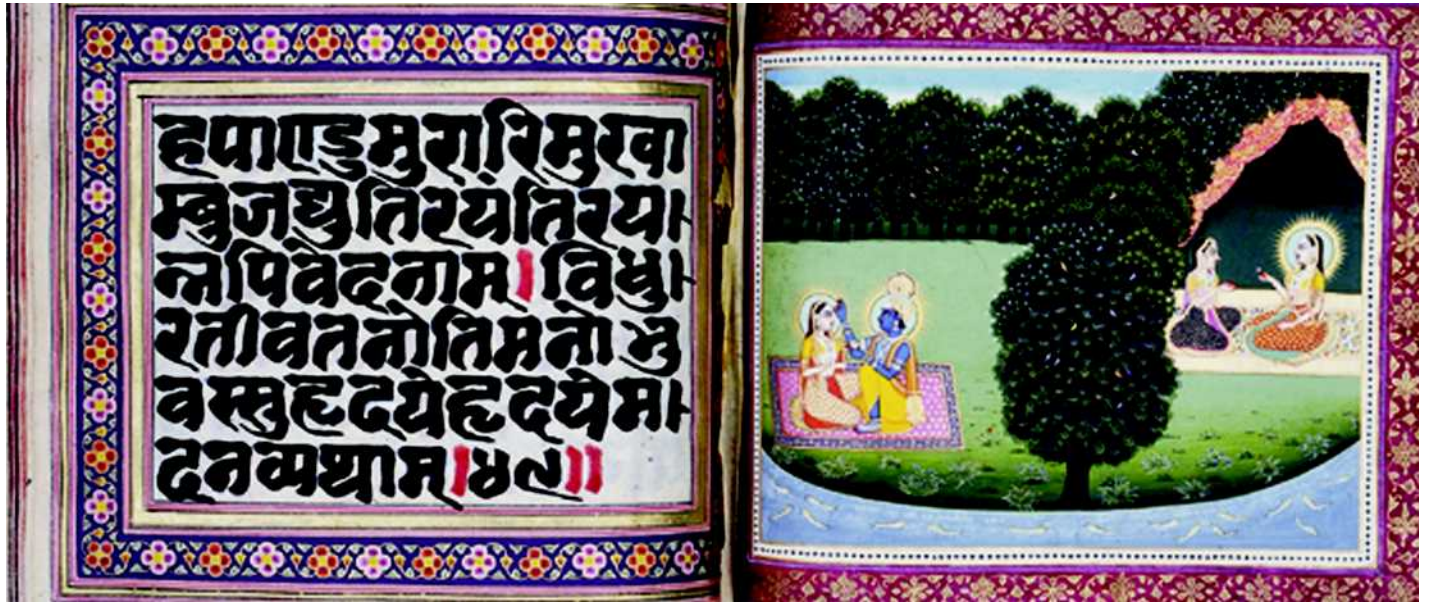 हपाण्डुमुरारिमुखा
म्बुजद्युतिरयंतिरय
न्नपिवेदनाम्।विधु
रतीवतनोतिमनोभु
वस्सुहृदयेहृदयेम
दनव्यथाम्।४९॥